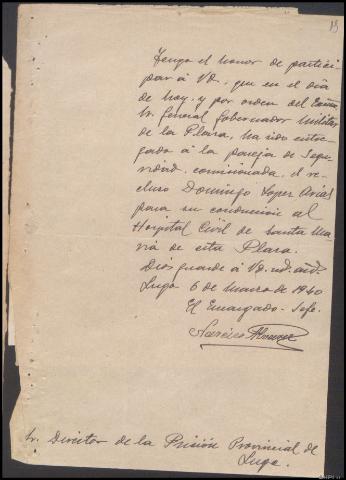 Tengo el honor de partici-
par á VD. que en el dia
de hoy y por orden del Excmo
Sr. General Gobernador Militar
de la Plaza, ha sido entre-
gado á la pareja de Segu-
ridad, comisionada, el re-
cluso Domingo Lopez Arias
para su conduccion al
Hospital Civil de Santa Ma-
ria de esta Plaza.
Dios guarde á VD.
Lugo 6 de Marzo de 1940
El Encargado-Jefe.
Narciso
Sr. Director de la Prisión Provincial de
Lugo.